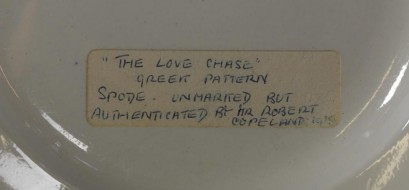 "THE LOVE CHASE"
GREEK PATTERN
SPODE. UNMARKED BUT
AUTHENTICATED BY MR ROBERT
COPELAND